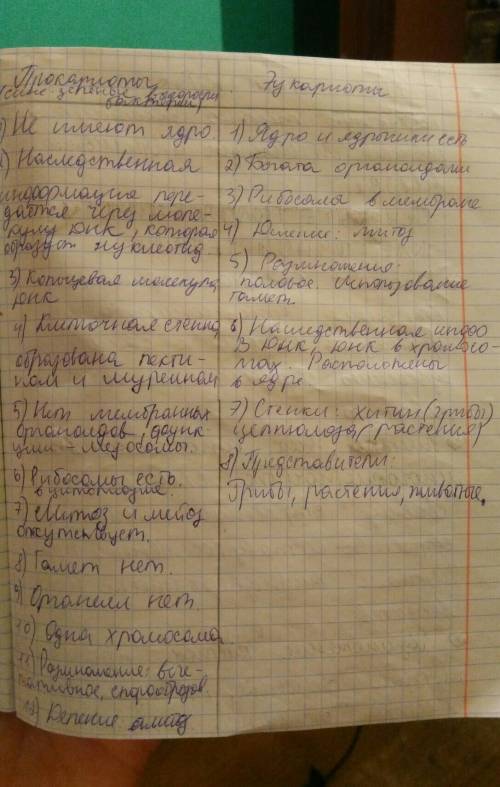 Прокариоты
(сине-зелёные водоросли
бактерии)
1) Не имеют ядро
2) Наследственная
информация пере-
даётся через моле-
кулу ДНК, которая
образует нуклеотид.
3) Кольцевая молекула
ДНК
4) Клеточная стенка
образована пекти-
ном и муреином
5) Нет мембранных
органоидов, функ
ции - мезосомы.
6) Рибосомы есть.
в цитоплазме.
7) Митоз и мейоз
отсутствует.
8) Гамет нет.
9) Органелл нет.
10) Одна хромосома
11) Размножение: веге-
тативное, спорообразов.
12) Деление амитоз
Эукариоты
1) Ядро и ядрышки есть
2) Богата органоидами
3) Рибосома в мембране
4) Деление: митоз
5) Размножение:
половое. Использование
гамет.
6) Наследственная инфо
в ДНК, ДНК в хромосо-
мах. Расположены
в ядре.
7) Стенки: хитин (грибы)
целлюлоза (растения)
8) Представители:
Грибы, растения, животные.